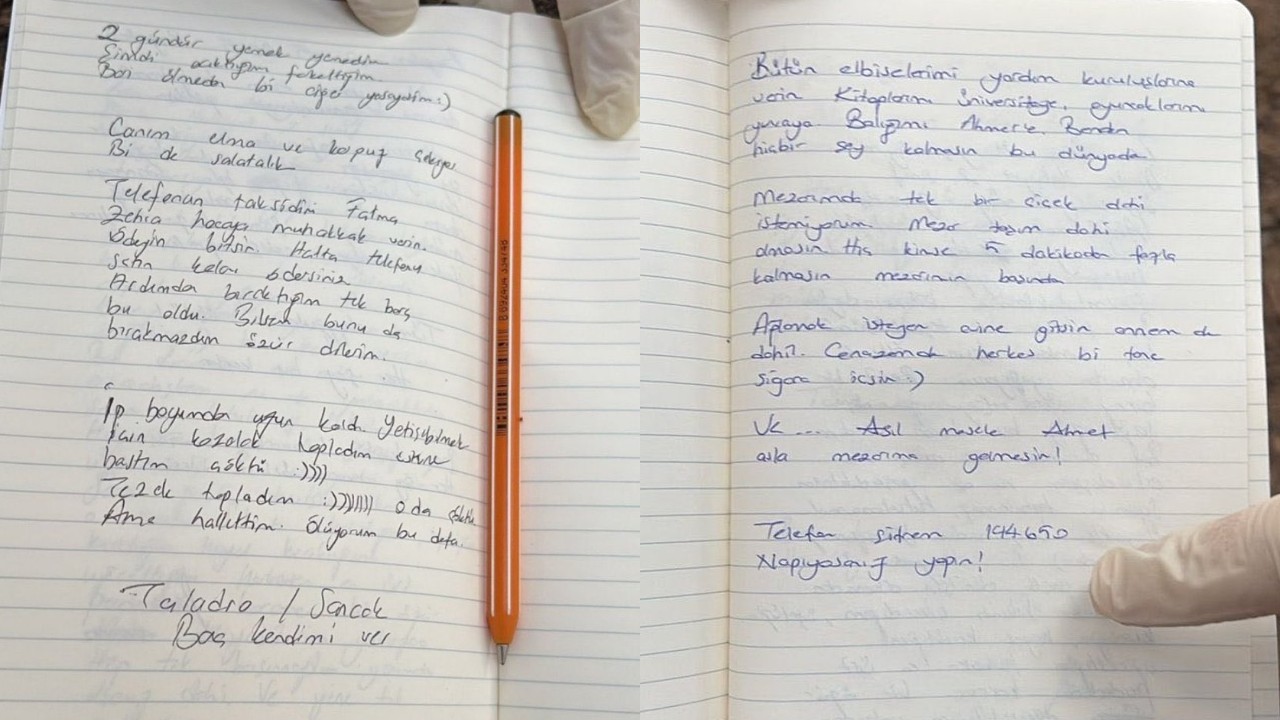 2 gündür yemek yemedim
Şimdi acıktığımı farkettim.
Ben ölmeden bi çiğei yeseydim:)
Canım elma ve karpuz çekiyor
Bi de salatalık
Telefonun taksidini Fatma
Zehra hocaya muhakkak verin.
Ödeyin bitsin Hatta telefonu
satın kalanı ödersiniz
Ardımda bıraktığım tek borç
bu oldu. Bilsem bunu da
bırakmazdım özür dilerim.
İp boyumdan uzun kaldı. Yetişebilmek
için kozalak topladım üstüne
bastım çöktü :))))
Tezek topladım :))))))) o da çöktü
Ama hallettim. Ölüyorum bu defa.
Taladro / Sancak
Baş kendimi ver
Bütün elbiselerimi yardım kuruluşlarına
verin Kitaplarımı üniversiteye, oyuncaklarımı
yuvaya Balığımı Ahmet'e. Benden
hiçbir şey kalmasın bu dünyada
Mezarımda tek bir çiçek dahi
istemiyorum. Mezar taşım dahi
olmasın Hiç kimse 5 dakikadan fazla
kalmasın mezarımın başında
Ağlamak isteyen evine gitsin annem de
dahil. Cenazemde herkes bi tane
sigara içsin :)
Ve... Asıl mesele Ahmet
asla mezarıma gelmesin!
Telefon şifrem 194650
Napıyosanız yapın!
8 692404 554748